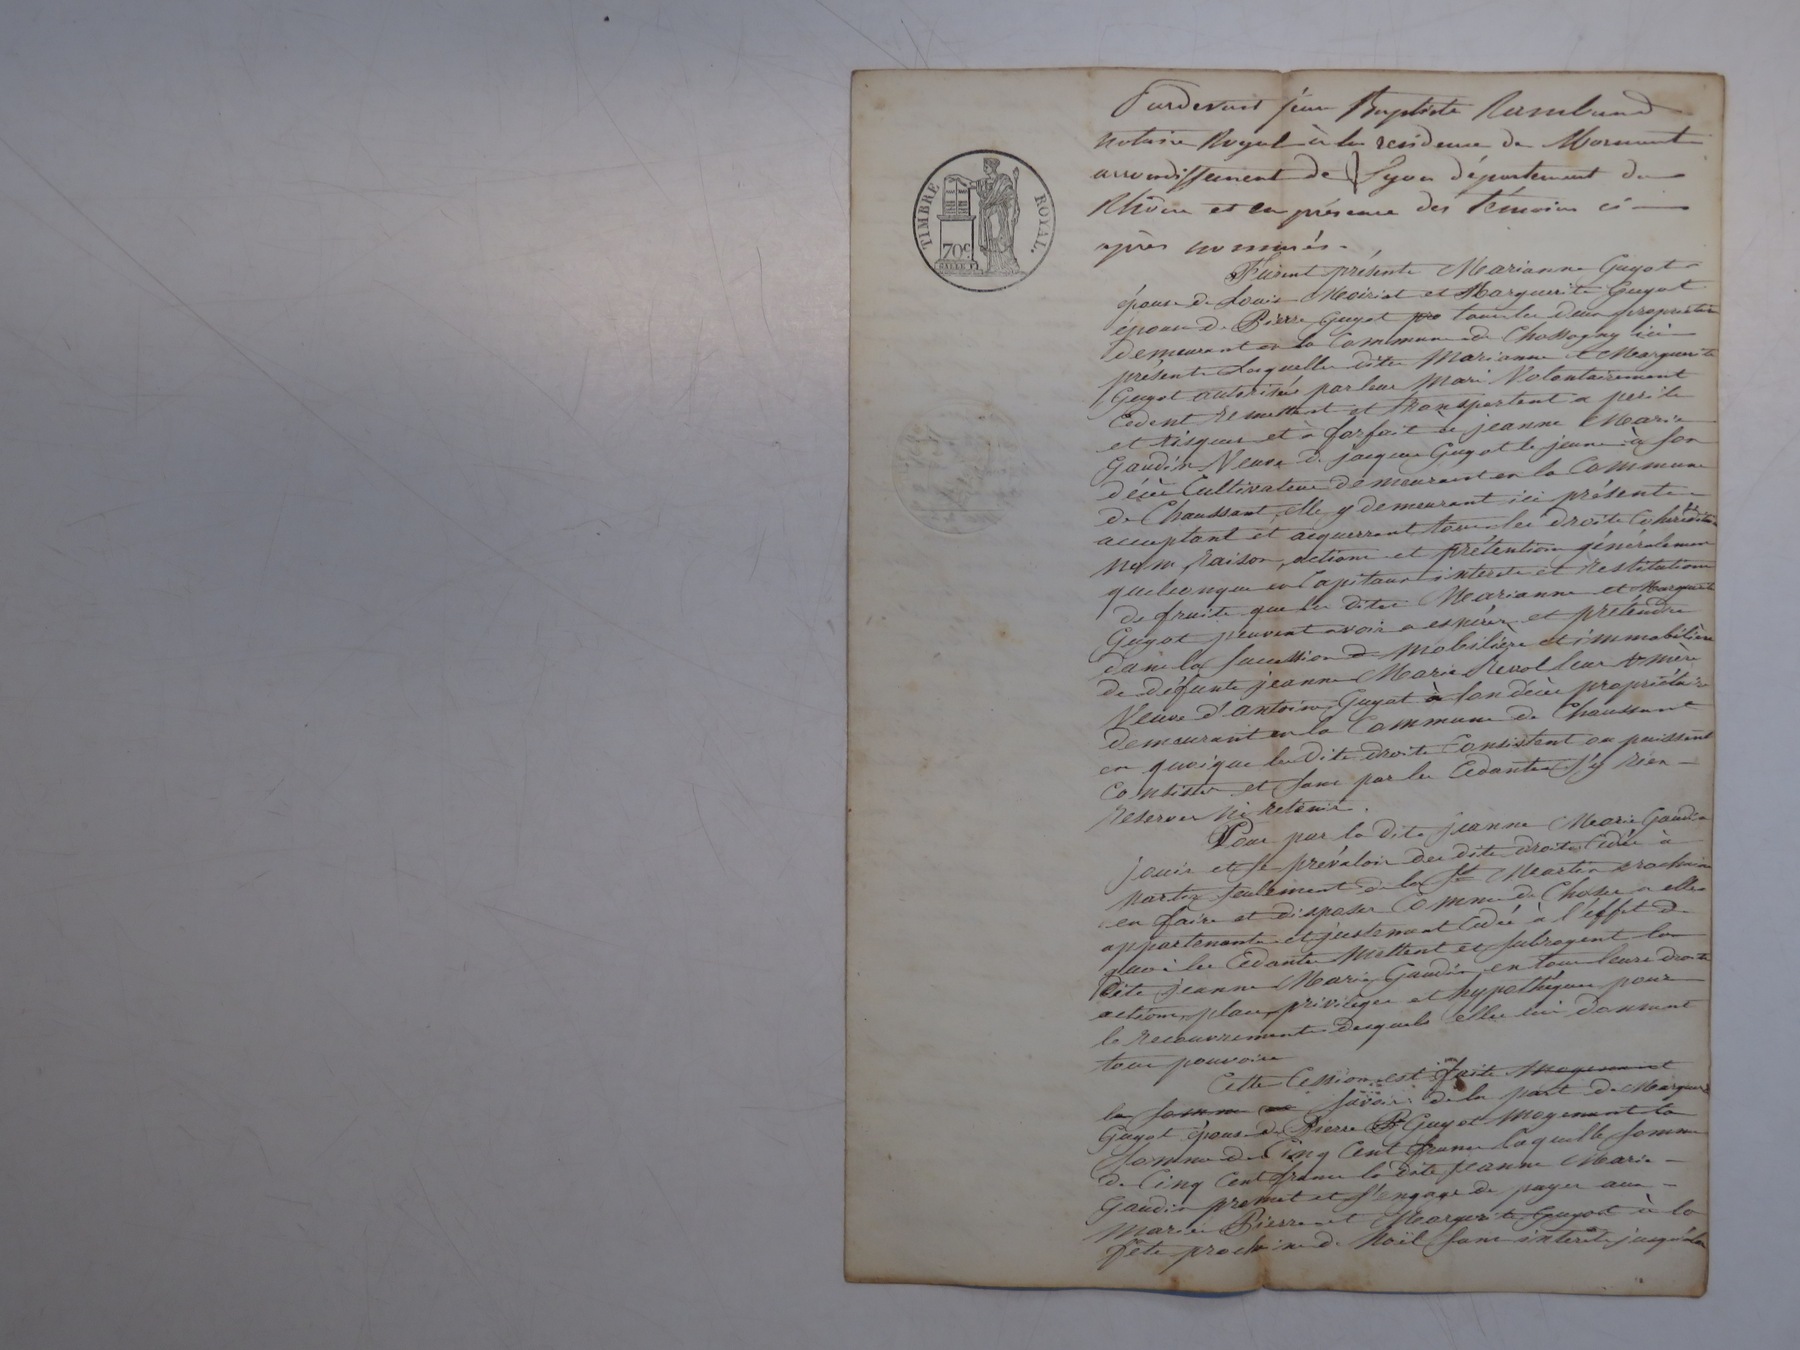 TIMBRE ROYAL.
70c
Pardevant jean Baptiste Rambaud
notaire Royal à la residence de Mornant
arrondissement de Lyon département du
Rhône et en présence des témoins ci
après nommés.
Furent présente Marianne Guyot
épouse de Louis Moiriat et Marguerite Guyot
épouse de Pierre Guyot tous les deux proprietaire
demeurant en la Commune de Chassagny ici
présente lesquelles dites Marianne et Marguerite
Guyot autorisées par leur Mari Volontairement
Cedent remettent et transportent a perils
et risques et à forfait à jeanne Marie
Gaudin Veuve de jacques Guyot le jeune à son
décès Cultivateur demeurant en la Commune
de Chaussant, elle y demeurant ici présente
acceptant et acquerrant tous les droits Cohereditaires
nom, raison, actions et prétention généralement
quelconque en Capitaux interets et Restitutions
de fruits que les dites Marianne et Marguerite
Guyot peuvent avoir a espérer et prétendre
dans la succession mobilière et immobilière
de défunte jeanne Marie Revol leur mère
Veuve d'antoine Guyot à son décès propriétaire
demeurant en la Commune de Chaussant
en quoi que les dits droits Consistent ou puissent
Consister et sans par les Cedantes s'y rien
reserver ni retenir.
Pour par la dite jeanne Marie Gaudin
jouir et se prévaloir des dits droits Cédés à
partir seulement de la St Martin prochaine
en faire et disposer Comme de Choses a elle
appartenante et justement Cédés à l'effet de
quoi les Cedantes Mettent et subrogent la
Dite jeanne Marie Gaudin en tous leurs droits
actions, place, privilèges et hypothèques pour
le recouvrement desquels elles lui donnent
tous pouvoirs
Cette Cession est faite Moyennant
la somme savoir: de la part de Marguerite
Guyot épouse de Pierre Guyot Moyennant la
somme de Cinq Cent francs laquelle somme
de Cinq Cent francs la dite jeanne Marie
Gaudin promet et s'engage de payer aux
Mariés Pierre et Marguerite Guyot à la
fête prochaine de Noël sans intérêts jusqu'alors